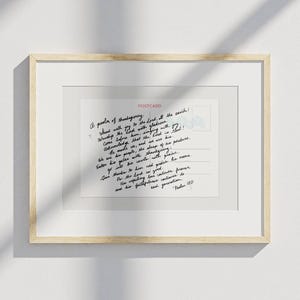 POSTCARD
A psalm of thanksgiving
Shout with joy to the Lord, all the earth!
Worship the Lord with gladness.
Come before him, singing with joy.
Acknowledge that the Lord is God!
He made us, and we are his.
We are his people, the sheep of his pasture.
Enter his gates with thanksgiving;
go into his courts with praise.
Give thanks to him and praise his name.
For the Lord is good.
His unfailing love continues forever
and his faithfulness continues to
each generation.
- Psalm 100